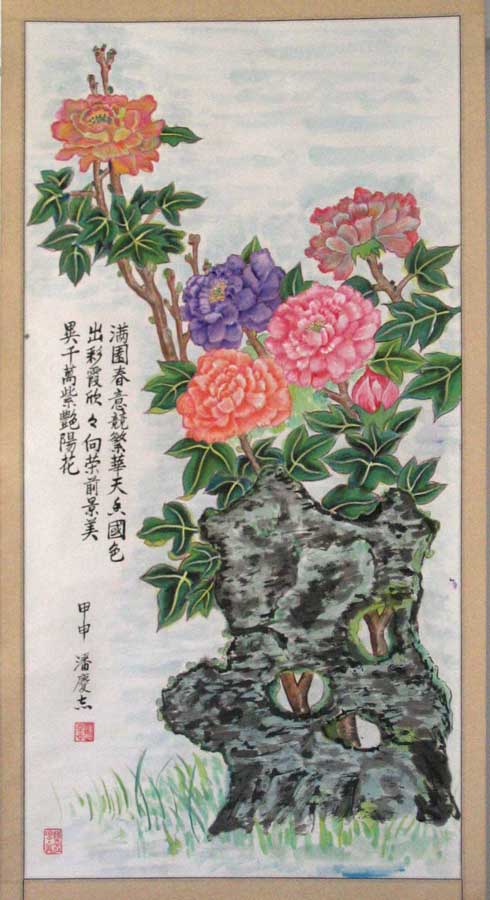 满园春意競繁華天香國色
出彩霞欣々向荣前景美
異千萬紫艷陽花
甲申 潘慶志